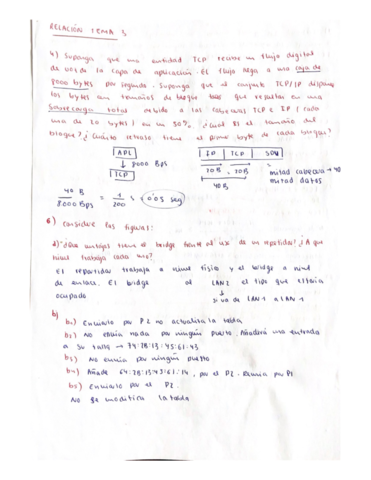 RELACIÓN TEMA 3
4) Suponga que una entidad TCP recibe un flujo digital
de voz de la capa de aplicación. El flujo llega a una tasa de
8000 bytes por segundo. Suponga que el conjunto TCP/IP dispone
los bytes en tamaños de bloque tales que resultan en una
sobrecarga total debido a las cabeceras TCP e IP (cada
una de 20 bytes) en un 50%. ¿Cuál es el tamaño del
bloque? ¿Cuánto retraso tiene el primer byte de cada bloque?
APL
↓ 8000 Bps
TCP
IP TCP SDU
20B 20B
40 B
mitad cabecera → 40
mitad datos
40 B / 8000 Bps = 1/200 = 0'005 seg
6) Considere las figuras:
a) ¿Qué ventajas tiene el bridge frente al uso de un repetidor? ¿A qué
nivel trabaja cada uno?
El repetidor trabaja a nivel físico y el bridge a nivel
de enlace. El bridge al LAN2 el tipo que estaría
ocupado
si va de LAN1 a LAN1
b)
b1) Enviarlo por P2 no actualiza la tabla
b2) No envía nada por ningún puerto. Añadirá una entrada
a su tabla → 74:28:13:45:61:43.
b3) No envía por ningún puerto
b4) Añade 64:28:13:43:61:14, por el P2. Reenvía por P1
b5) Enviarlo por el P2.
No se modifica la tabla